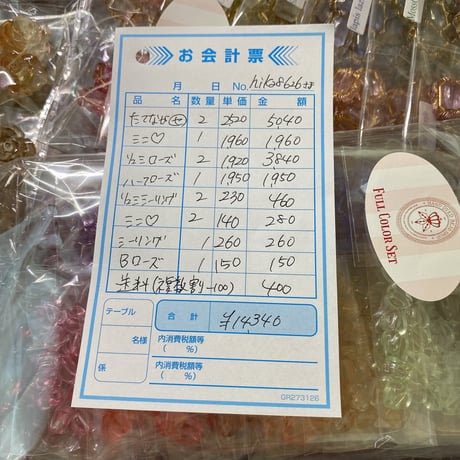 お会計票
月 日 No. hika8626さま
品 名 数量 単価 金 額
たてなが(セ) 2 2520 5,040
ミニ♡ 1 1,960 1,960
1/2ミローズ 2 1,920 3840
ハーフローズ 1 1,950 1,950
1/2ミーリング 2 230 460
ミニ♡ 2 140 280
ミーリング 1 260 260
Bローズ 1 150 150
送料(複数割-100) 400
テーブル 合 計 ¥14,340
名様 内消費税額等
( %)
係 内消費税額等
( %)
GR273126
FULL COLOR SET